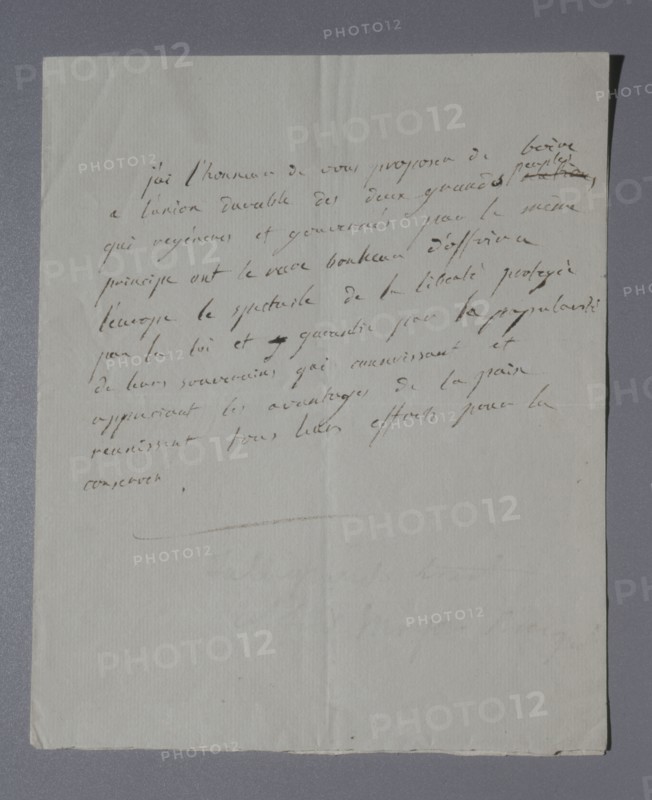 j'ai l'honneur de vous proposer de boire
a l'union durable des deux grands peuples nations,
qui regénerés et gouvernés par le même
principe ont le rare bonheur d'offrir a
l'europe le spectacle de la liberté protegée
par la loi et garantie par la popularité
de leurs souverains qui connoissant et
appreciant les avantages de la paix
reunissent tous leurs efforts pour la
conserver.
PHOTO12
PHOTO12
PHOTO12
PHOTO12
PHOTO12
PHOTO12
PHOTO12
PHOTO12
PHOTO12
PHOTO12
PHOTO12
PHOTO12
PHOTO12
PHOTO12